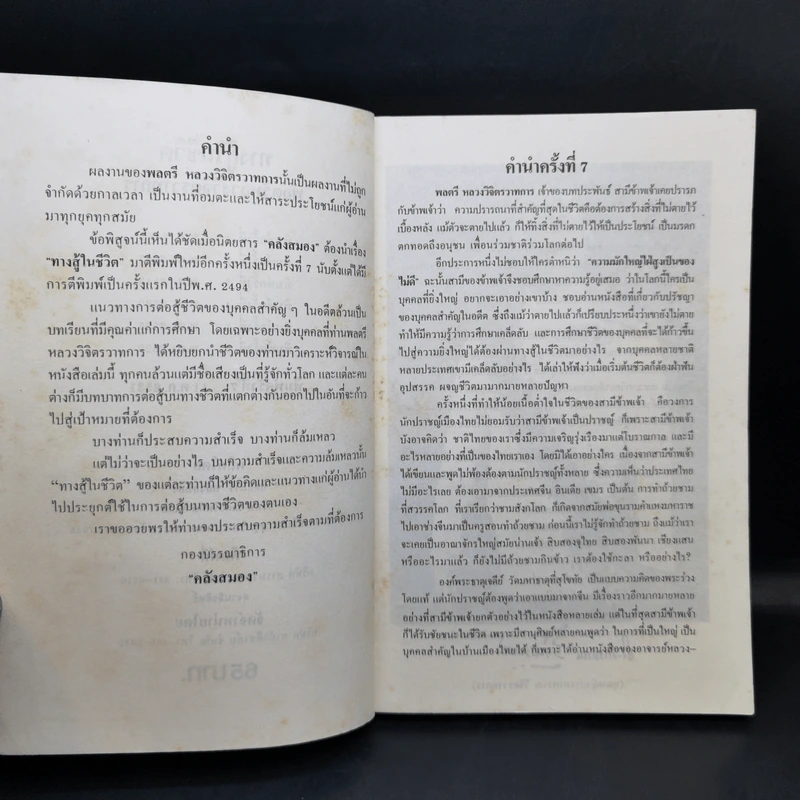 คำนำ
ผลงานของพลตรี หลวงวิจิตรวาทการนั้นเป็นผลงานที่ไม่ถูก
จำกัดด้วยกาลเวลา เป็นงานที่อมตะและให้สาระประโยชน์แก่ผู้อ่าน
มาทุกยุคทุกสมัย
ข้อพิสูจน์นี้เห็นได้ชัดเมื่อนิตยสาร "คลังสมอง" ต้องนำเรื่อง
"ทางสู้ในชีวิต" มาตีพิมพ์ใหม่อีกครั้งหนึ่งเป็นครั้งที่ 7 นับตั้งแต่ได้มี
การตีพิมพ์เป็นครั้งแรกในปีพ.ศ. 2494
แนวทางการต่อสู้ชีวิตของบุคคลสำคัญ ๆ ในอดีตล้วนเป็น
บทเรียนที่มีคุณค่าแก่การศึกษา โดยเฉพาะอย่างยิ่งบุคคลที่ท่านพลตรี
หลวงวิจิตรวาทการ ได้หยิบยกนำชีวิตของท่านมาวิเคราะห์วิจารณ์ใน
หนังสือเล่มนี้ ทุกคนล้วนแต่มีชื่อเสียงเป็นที่รู้จักทั่วโลก และแต่ละคน
ต่างก็มีบทบาทการต่อสู้บนทางชีวิตที่แตกต่างกันออกไปในอันที่จะก้าว
ไปสู่เป้าหมายที่ต้องการ
บางท่านก็ประสบความสำเร็จ บางท่านก็ล้มเหลว
แต่ไม่ว่าจะเป็นอย่างไร บนความสำเร็จและความล้มเหลวนั้น
"ทางสู้ในชีวิต" ของแต่ละท่านก็ให้ข้อคิดและแนวทางแก่ผู้อ่านได้นำ
ไปประยุกต์ใช้ในการต่อสู้บนทางชีวิตของตนเอง
เราขออวยพรให้ท่านจงประสบความสำเร็จตามที่ต้องการ
กองบรรณาธิการ
"คลังสมอง"
คำนำครั้งที่ 7
พลตรี หลวงวิจิตรวาทการ เจ้าของบทประพันธ์ สามีข้าพเจ้าเคยปรารภ
กับข้าพเจ้าว่า ความปรารถนาที่สำคัญที่สุดในชีวิตคือต้องการสร้างสิ่งที่ไม่ตายไว้
เบื้องหลัง แม้ตัวจะตายไปแล้ว ก็ให้ทิ้งสิ่งที่ไม่ตายไว้ให้เป็นประโยชน์ เป็นมรดก
ตกทอดถึงอนุชน เพื่อนร่วมชาติร่วมโลกต่อไป
อีกประการหนึ่งไม่ชอบให้ใครตำหนิว่า "ความมักใหญ่ใฝ่สูงเป็นของ
ไม่ดี" ฉะนั้นสามีของข้าพเจ้าจึงชอบศึกษาหาความรู้อยู่เสมอ ว่าในโลกนี้ใครเป็น
บุคคลที่ยิ่งใหญ่ อยากจะเอาอย่างเขาบ้าง ชอบอ่านหนังสือที่เกี่ยวกับปรัชญา
ของบุคคลสำคัญในอดีต ซึ่งถึงแม้ว่าตายไปแล้วก็เปรียบประหนึ่งว่าเขายังไม่ตาย
ทำให้มีความรู้ว่าการศึกษาเคล็ดลับ และการศึกษาชีวิตของบุคคลที่จะได้ก้าวขึ้น
ไปสู่ความยิ่งใหญ่ได้ต้องผ่านทางสู้ในชีวิตมาอย่างไร จากบุคคลหลายชาติ
หลายประเทศเขามีเคล็ดลับอย่างไร ได้เล่าให้ฟังว่าเมื่อเริ่มต้นชีวิตก็ต้องฝ่าฟัน
อุปสรรค ผจญชีวิตมามากมายหลายปัญหา
ครั้งหนึ่งที่ทำให้น้อยเนื้อต่ำใจในชีวิตของสามีข้าพเจ้า คือวงการ
นักปราชญ์เมืองไทยไม่ยอมรับว่าสามีข้าพเจ้าเป็นปราชญ์ ก็เพราะสามีข้าพเจ้า
บังอาจคิดว่า ชาติไทยของเราซึ่งมีความเจริญรุ่งเรืองมาแต่โบราณกาล และมี
อะไรหลายอย่างที่เป็นของไทยเราเอง โดยมิได้เอาอย่างใคร เนื่องจากสามีข้าพเจ้า
ได้เขียนและพูดไม่พ้องต้องตามนักปราชญ์ทั้งหลาย ซึ่งความเห็นว่าประเทศไทย
ไม่มีอะไรเลย ต้องเอามาจากประเทศจีน อินเดีย เขมร เป็นต้น การทำถ้วยชาม
ที่สวรรคโลก ที่เราเรียกว่าชามสังกโลก ก็เกิดจากสมัยพ่อขุนรามคำแหงมหาราช
ไปเอาช่างจีนมาเป็นครูสอนทำถ้วยชาม ก่อนนี้เราไม่รู้จักทำถ้วยชาม ถึงแม้ว่าเรา
จะเคยเป็นอาณาจักรใหญ่สมัยน่านเจ้า สิบสองจุไทย สิบสองพันนา เชียงแสน
หรืออะไรมาแล้ว ก็ยังไม่มีถ้วยชามกินข้าว เราต้องใช้กะลา หรืออย่างไร?
องค์พระธาตุเจดีย์ วัดมหาธาตุที่สุโขทัย เป็นแบบความคิดของพระร่วง
โดยแท้ แต่นักปราชญ์ต้องพูดว่าเอาแบบมาจากจีน มีเรื่องราวอีกมากมายหลาย
อย่างที่สามีข้าพเจ้ายกตัวอย่างไว้ในหนังสือหลายเล่ม แต่ในที่สุดสามีข้าพเจ้า
ก็ได้รับชัยชนะในชีวิต เพราะมีสานุศิษย์หลายคนพูดว่า ในการที่เป็นใหญ่ เป็น
บุคคลสำคัญในบ้านเมืองไทยได้ ก็เพราะได้อ่านหนังสือของอาจารย์หลวง-